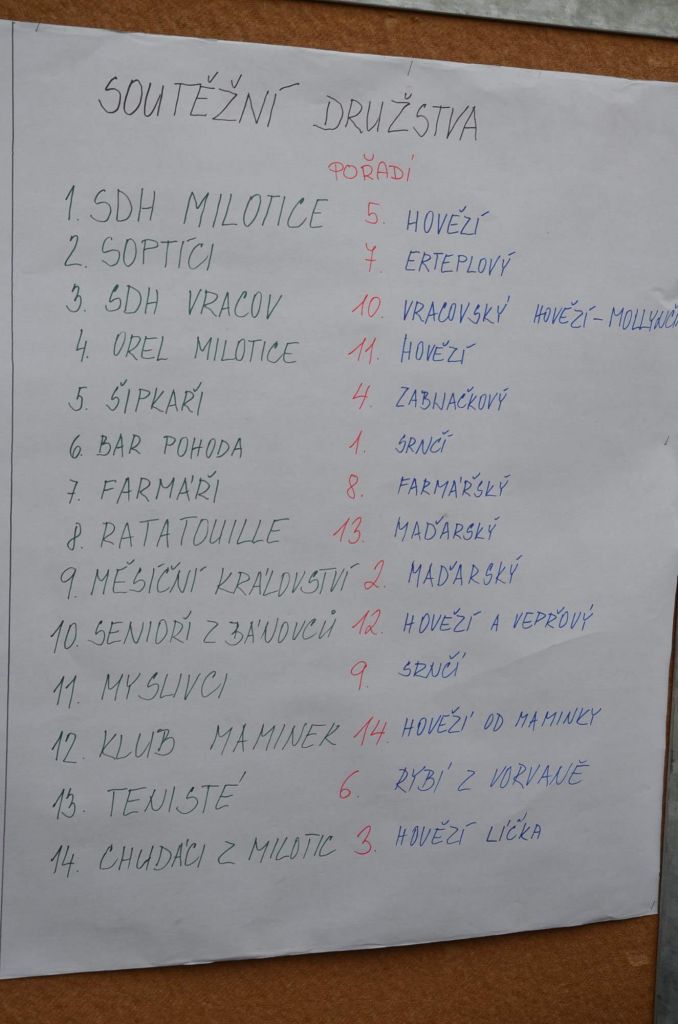 SOUTĚŽNÍ DRUŽSTVA
POŘADÍ
1. SDH MILOTICE 5. HOVĚZÍ
2. SOPTÍCI 7. ERTEPLOVÝ
3. SDH VRACOV 10. VRACOVSKÝ HOVĚZÍ-
4. OREL MILOTICE 11. HOVĚZÍ
5. ŠIPKAŘI 4. ZABIJAČKOVÝ
6. BAR POHODA 1. SRNČÍ
7. FARMÁŘI 8. FARMÁŘSKÝ
8. RATATOUILLE 13. MAĎARSKÝ
9. MĚSÍČNÍ KRÁLOVSTVÍ 2. MAĎARSKÝ
10. SENIOŘI Z BÁNOVCŮ 12. HOVĚZÍ A VEPŘOVÝ
11. MYSLIVCI 9. SRNČÍ
12. KLUB MAMINEK 14. HOVĚZÍ OD MAMINKY
13. TENISTÉ 6. RYBÍ Z VORVANĚ
14. CHUDÁCI Z MILOTIC 3. HOVĚZÍ LÍČKA